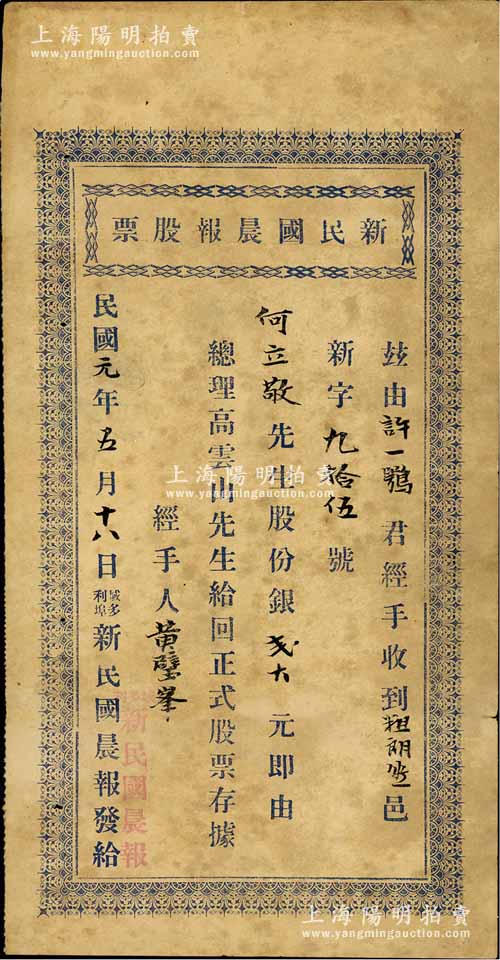 上海陽明拍賣
www.yangmingauction.com
新民國晨報股票
玆由許一鶚君經手收到粗朗邑
新字九拾伍號
何立敬先生股份銀弍大元即由
總理高雲山先生給回正式股票存據
經手人黃璧峯
民國元年五月十八日域多利埠新民國晨報發給
新民國晨報
上海陽明拍賣
www.yangmingauction.com
上海陽明拍賣
www.yangmingauction.com